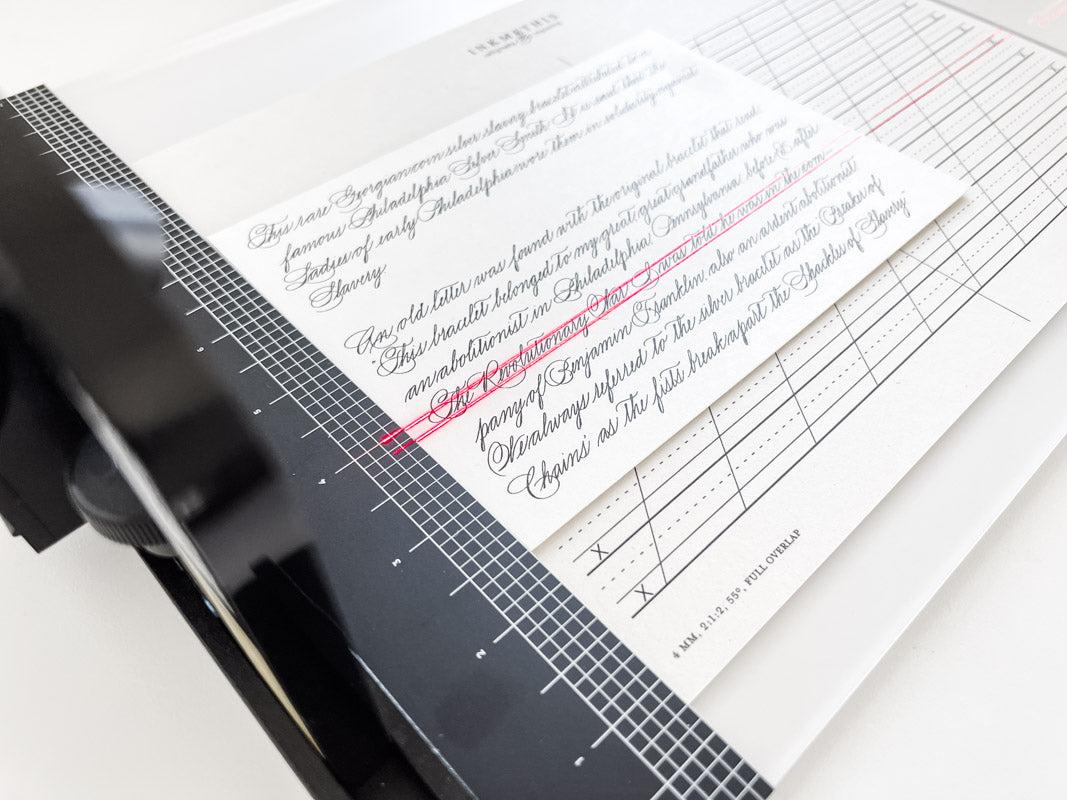 INKMETHIS
This rare Georgian coin silver slavery bracelet attributed to a
famous Philadelphia Silver Smith. It is said that the
Ladies of early Philadelphia wore them in solidarity against
Slavery.
An old letter was found with the original bracelet that read
This bracelet belonged to my great great grandfather who was
an abolitionist in Philadelphia, Pennsylvania before & after
The Revolutionary War. I was told he was in the com—
pany of Benjamin Franklin, also an ardent abolitionist
We always referred to the silver bracelet as the 'Breaker of
Chains' as the fists break apart the Shackles of Slavery
X
X
4 MM, 2:1:2, 55°, FULL OVERLAP
6
5
4
3
2
1